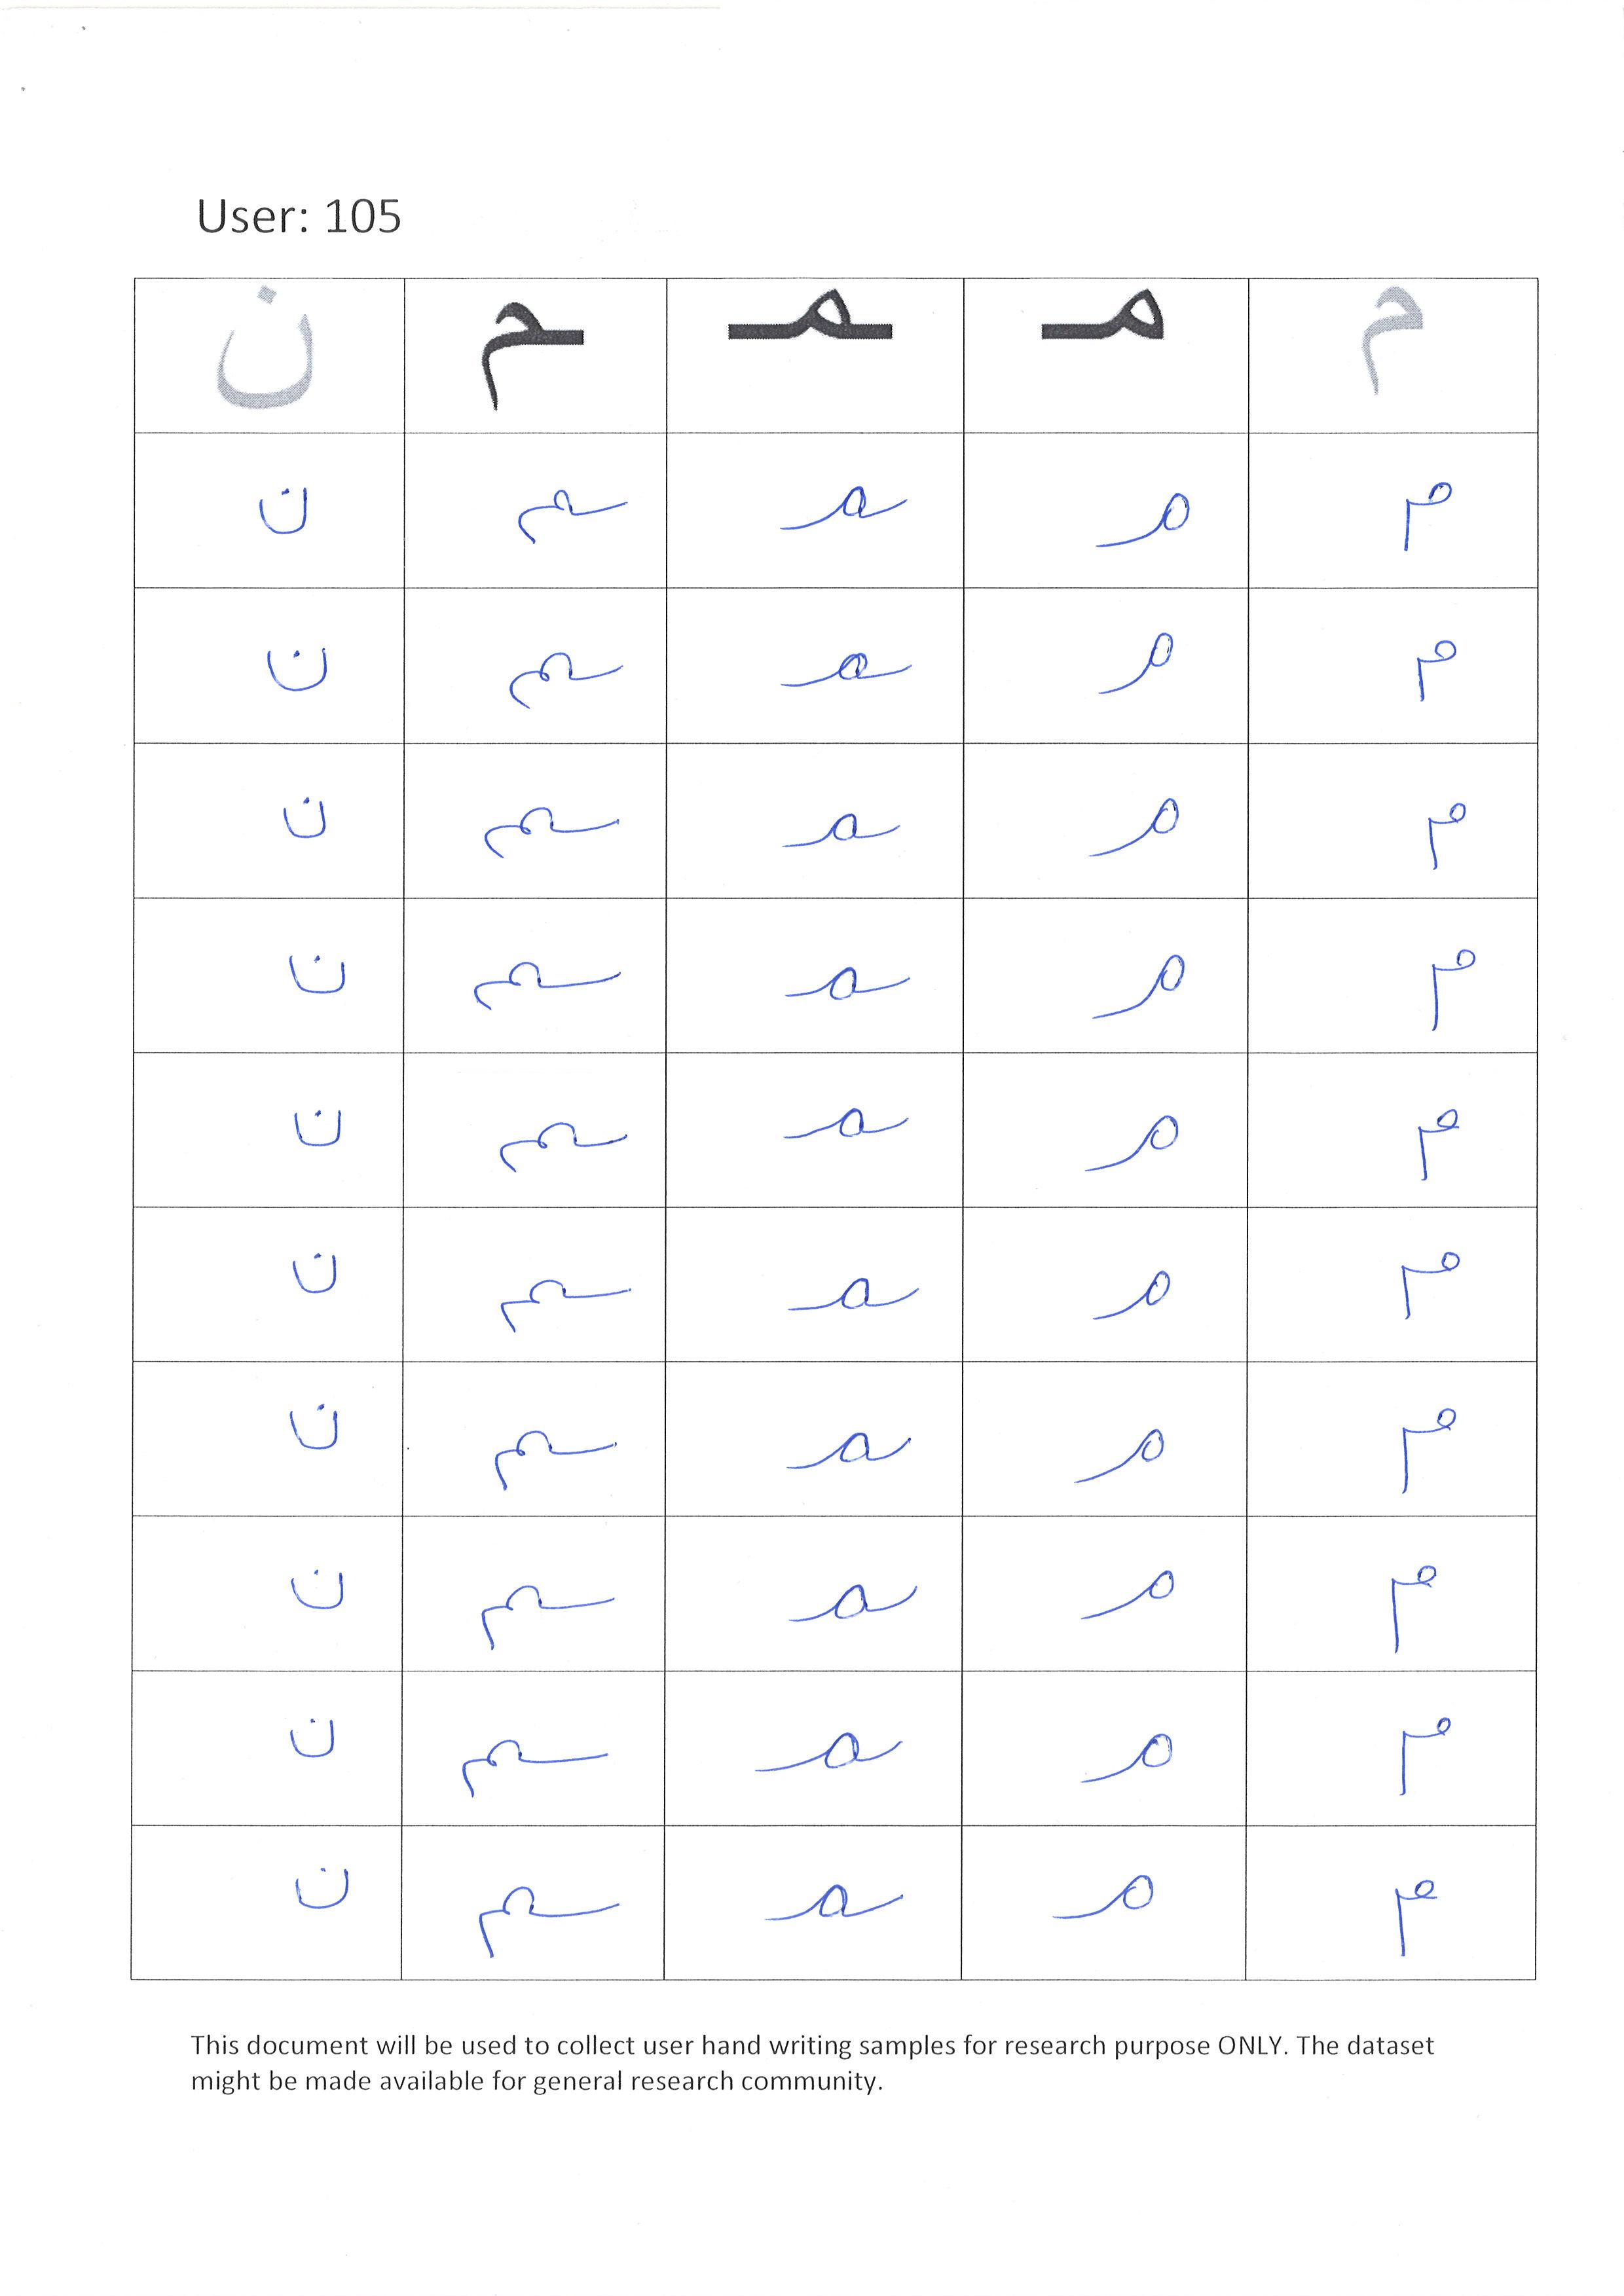 User: 105
م مـ ـمـ ـم ن
م مـ ـمـ ـم ن
م مـ ـمـ ـم ن
م مـ ـمـ ـم ن
م مـ ـمـ ـم ن
م مـ ـمـ ـم ن
م مـ ـمـ ـم ن
م مـ ـمـ ـم ن
م مـ ـمـ ـم ن
م مـ ـمـ ـم ن
م مـ ـمـ ـم ن
This document will be used to collect user hand writing samples for research purpose ONLY. The dataset
might be made available for general research community.